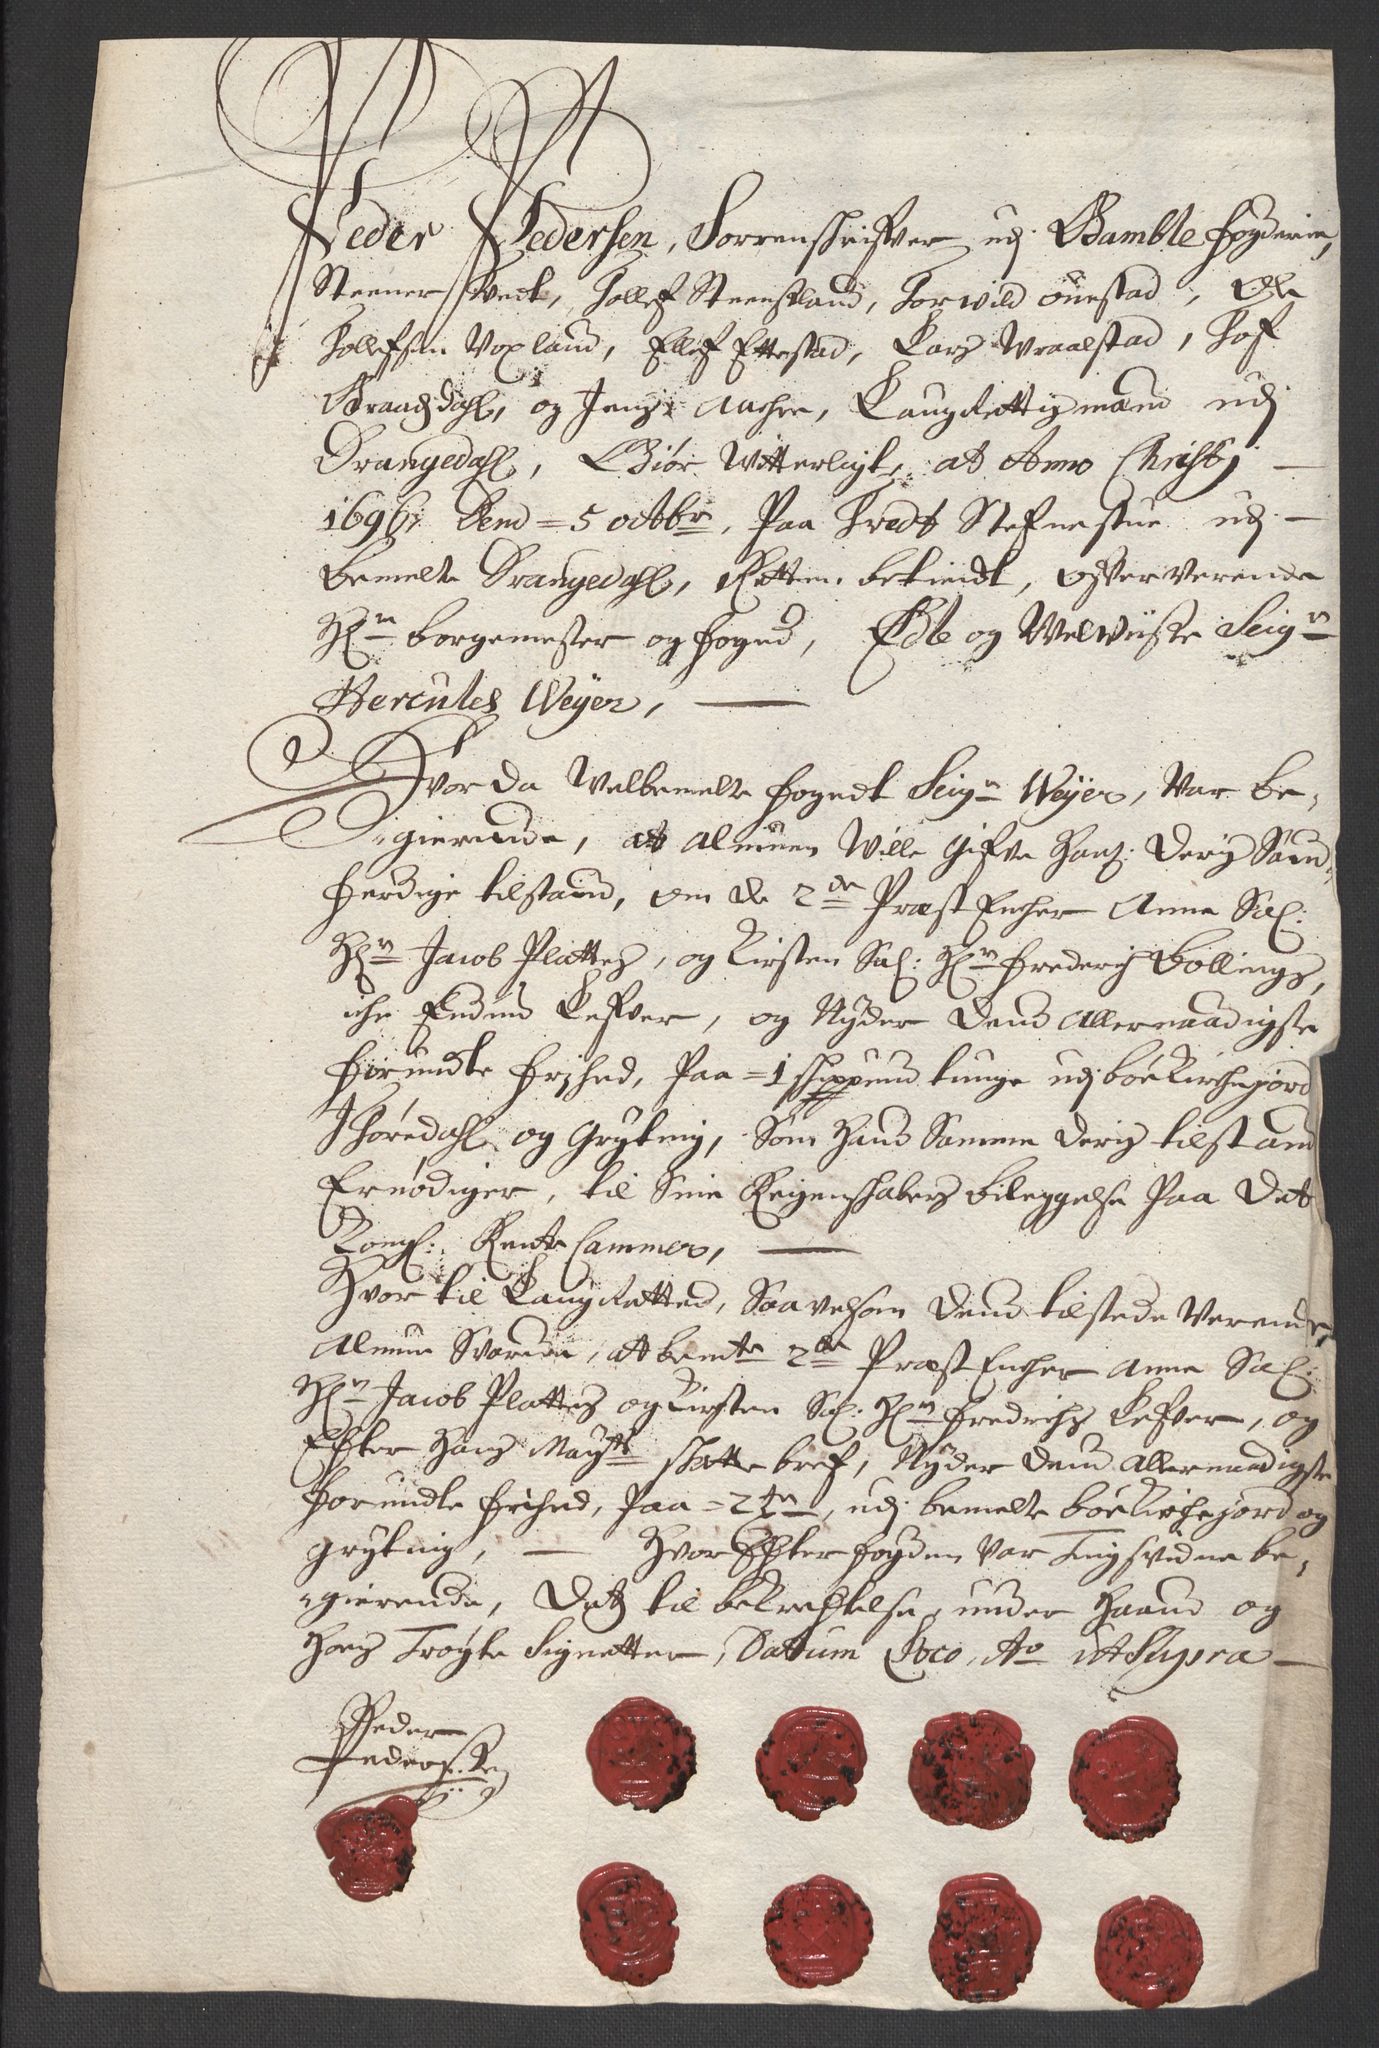 Peder Pedersen, Sorrenskrifver udj Bamble fogderie,
Steener Tvedt, Tollef Steensland, Torvild Ønestad, Ole
Tollefsen Voxland, Ellef Ettestad, Lars Wraalstad, Tof
Braadzdahl, og Jens Aachre, Laug Rettismænd udj
Drangedahl, Giør Witterligt, at Anno Christj —
1696, Dend = 5 octobr, Paa Tvedt Stefnestue udj —
bemelte Drangedahl, Retten bekiendt, ofververende
Hr borgemester og foged, Edle og Welwiise Seigr
Hercules Weyer, —
Hvor da Welbemelte fogedt Seigr Weyer, Var be-
-gierende, at almuen Wille gifve hans: deris Sand-
ferdige tilstand, om de 2de Præst Encher Anna Sal:
Hr Jacob Plattes, og Kirsten Sal: Hr frederich Bollings,
iche Endnu Lefver, og Nyder dend allernaadigste
forundte frihed, Paa = 1 skippund tunge udj bøe Kirchejord
Thøredahl og Gryting, Som hand Samme deris tilstand
Ernødiger, til Sine Regenskabers bileggelse Paa det
Kongl: Rente Cammer, —
Hvor til Laug Retted, Saavelsom dend tilstede Verende
Almue Svarede, at bemte 2de Præst Encher Anna Sal:
Hr Jacob Plattes og Kirsten Sal: Hr fredrichs Lefver, og
Efter Hans Mayts skatte bref, Nyder dend allernaadigste
forundte frihed, Paa = 2 tr, udj bemelte bøe Kirchejord og
gryting, — Hvor Efter fogden Var Tingsvidne be-
-gierende, Dets til bekreftelse under Haand og
hoes Trøgte Signetter, Datum Loco, Ao Ut Supra —
Peder
Pedersen